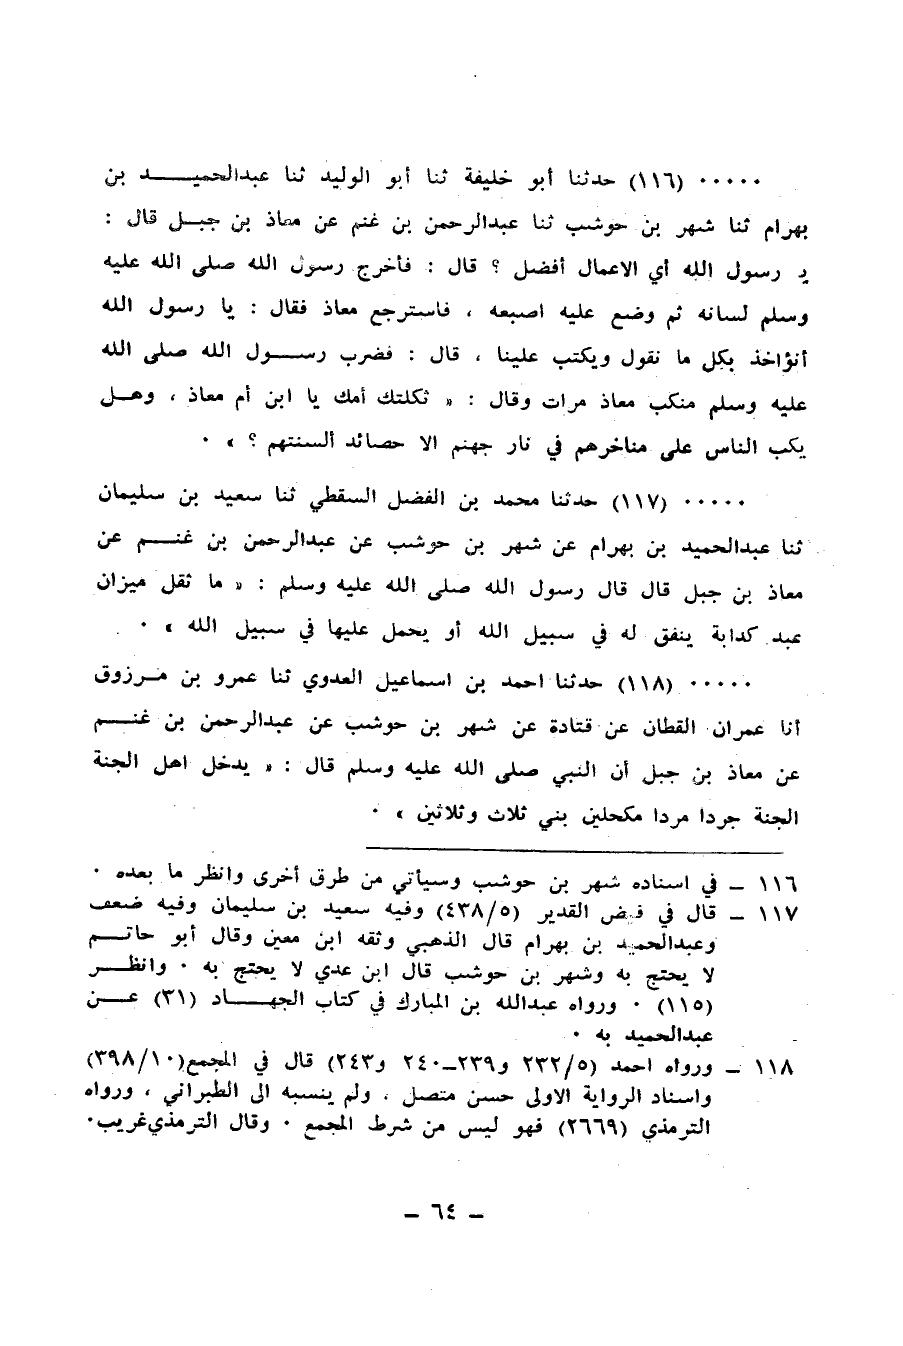 ٠٠٠٠٠ (١١٦) حدثنا أبو خليفة ثنا أبو الوليد ثنا عبدالحميـــــد بن
بهرام ثنا شهر بن حوشب ثنا عبدالرحمن بن غنم عن معاذ بن جبــل قال :
يـ رسول الله أي الاعمال أفضل ؟ قال : فأخرج رسول الله صلى الله عليه
وسلم لسانه ثم وضع عليه اصبعه ، فاسترجع معاذ فقال : يا رسول الله
أنؤاخذ بكل ما نقول ويكتب علينا ، قال : فضرب رســـول الله صلى الله
عليه وسلم منكب معاذ مرات وقال : « ثكلتك أمك يا ابن أم معاذ ، وهــل
يكب الناس على مناخرهم في نار جهنم الا حصائد ألسنتهم ؟ » ٠
٠٠٠٠٠ (١١٧) حدثنا محمد بن الفضل السقطي ثنا سعيد بن سليمان
ثنا عبدالحميد بن بهرام عن شهر بن حوشب عن عبدالرحمن بن غنـــم عن
معاذ بن جبل قال قال رسول الله صلى الله عليه وسلم : « ما ثقل ميزان
عبد كدابة ينفق له في سبيل الله أو يحمل عليها في سبيل الله » ٠
٠٠٠٠٠ (١١٨) حدثنا احمد بن اسماعيل العدوي ثنا عمرو بن مـرزوق
أنا عمران القطان عن قتادة عن شهر بن حوشب عن عبدالرحمن بن غنـــم
عن معاذ بن جبل أن النبي صلى الله عليه وسلم قال : « يدخل اهل الجنة
الجنة جردا مردا مكحلين بني ثلاث وثلاثين » ٠
١١٦ ــ في اسناده شهر بن حوشب وسيأتي من طرق أخرى وانظر ما بعده ٠
١١٧ ــ قال في فيض القدير (٤٣٨/٥) وفيه سعيد بن سليمان وفيه ضعف
وعبدالحميد بن بهرام قال الذهبي وثقه ابن معين وقال أبو حاتـــم
لا يحتج به وشهر بن حوشب قال ابن عدي لا يحتج به ٠ وانظـــر
(١١٥) ٠ ورواه عبدالله بن المبارك في كتاب الجهـــاد (٣١) عـــن
عبدالحميد به ٠
١١٨ ــ ورواه احمد (٢٣٢/٥ و٢٣٩ــ٢٤٠ و٢٤٣) قال في المجمع(٣٩٨/١٠)
واسناد الرواية الاولى حسن متصل ، ولم ينسبه الى الطبراني ، ورواه
الترمذي (٢٦٦٩) فهو ليس من شرط المجمع ٠ وقال الترمذي غريب٠
ــ ٦٤ ــ